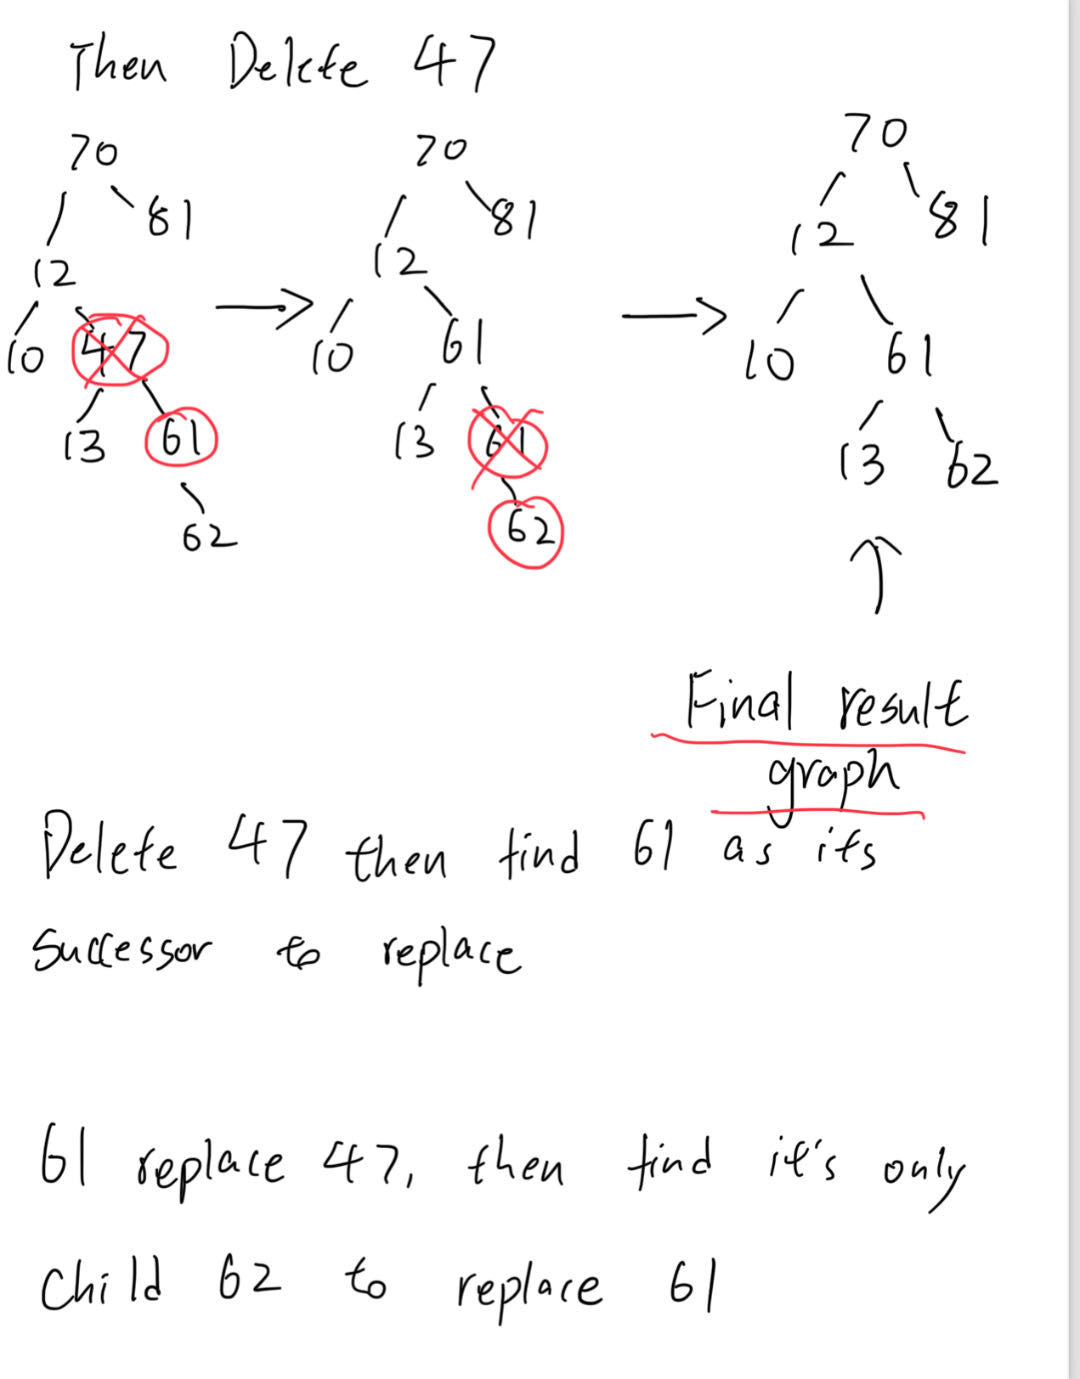 Then Delete 47
70 70 70
81 81 12 81
12 12
10 47 10 61 10 61
13 61 13 61 13 62
62 62
Final result
graph
Delete 47 then find 61 as its
Successor to replace
61 replace 47, then find it's only
Child 62 to replace 61